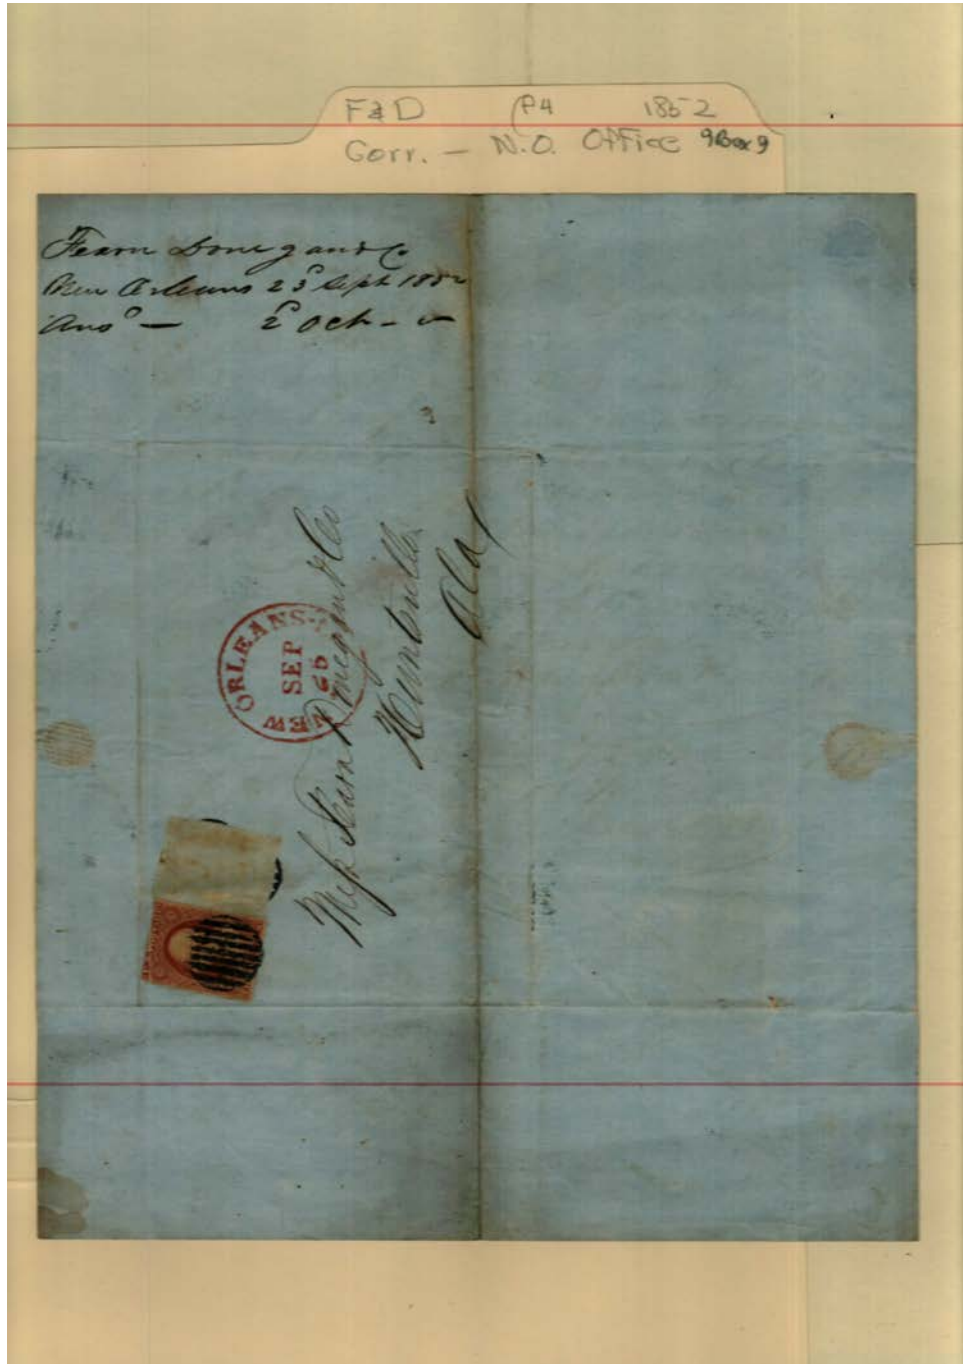 F&D P4 1852
Corr. - N.O. Office 9Box9
Fearn Donegan & Co
New Orleans 23d Sept 1852
Ansd — 2d Oct - "
NEW ORLEANS
SEP
25
Mess Fearn Donegan & Co
Huntsville
Ala